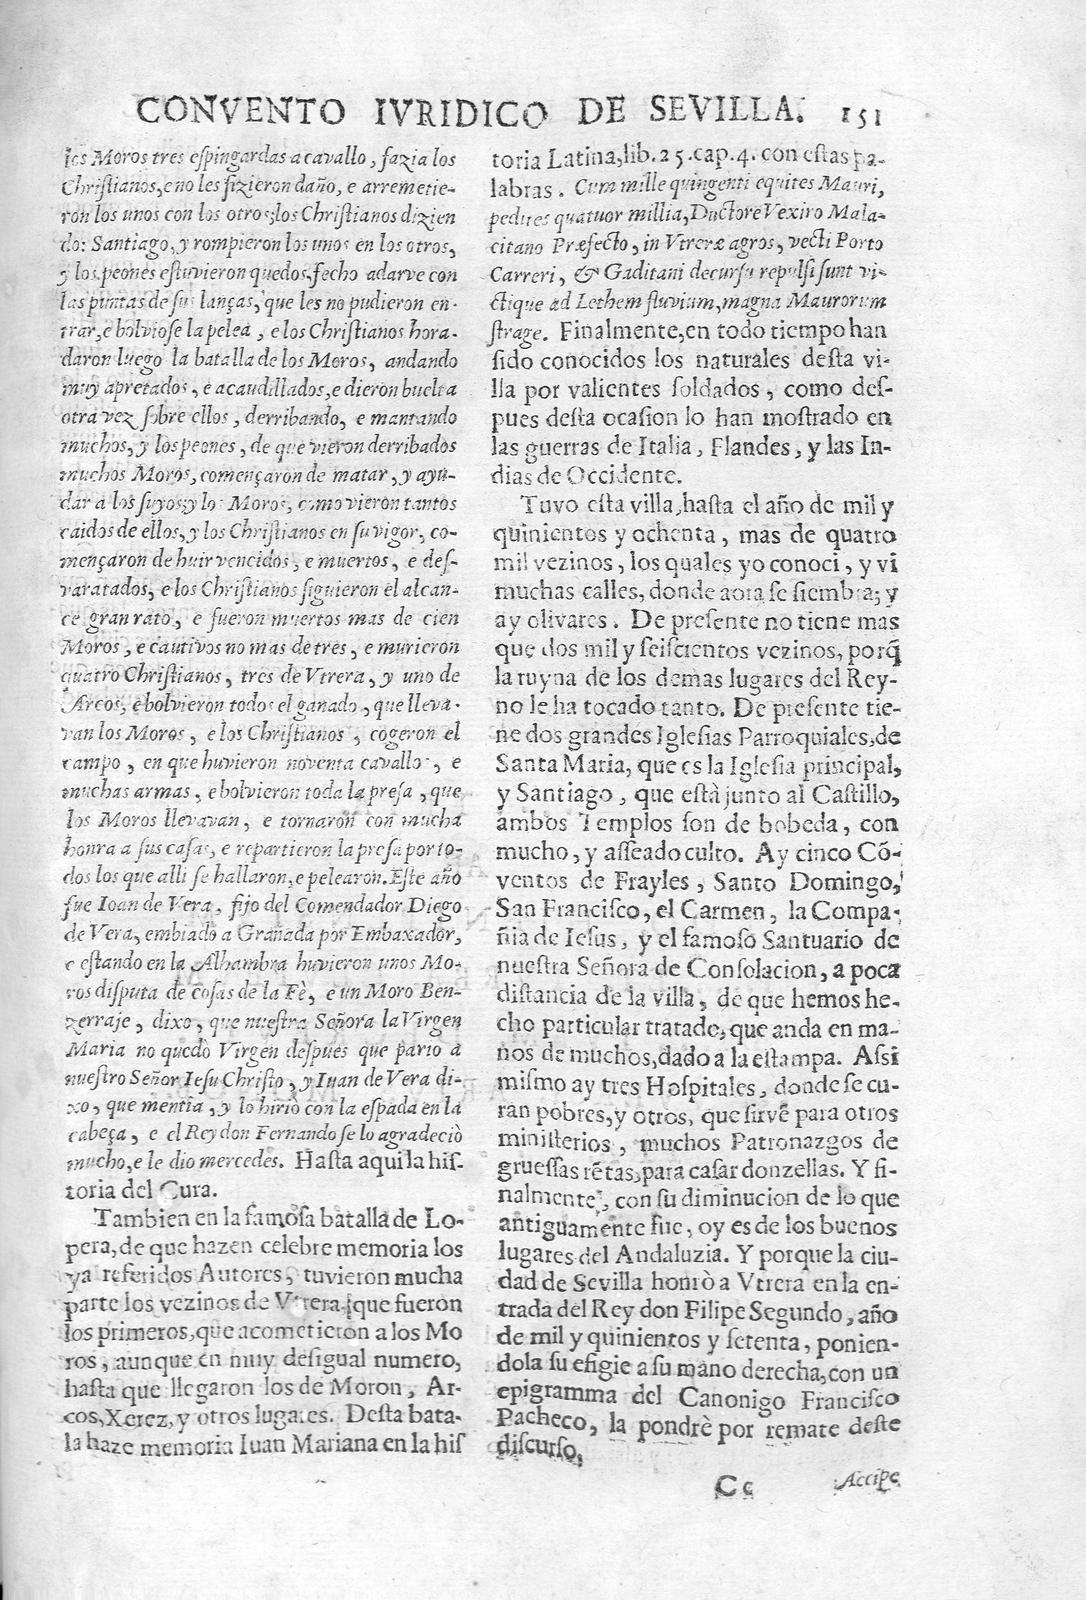 CONVENTO IVRIDICO DE SEVILLA. 151
los Moros tres espingardas a cavallo, fazia los
Christianos, e no les fizieron daño, e arremetie-
ron los unos con los otros; los Christianos dizien
do: Santiago, y rompieron los unos en los otros,
y los peones estuvieron quedos, fecho adarve con
las puntas de sus lanças, que les no pudieron en-
trar, e bolviose la pelea, e los Christianos hora-
daron luego la batalla de los Moros, andando
muy apretados, e acaudillados, e dieron buelta
otra vez sobre ellos, derribando, e mantando
muchos, y los peones, de que vieron derribados
muchos Moros, començaron de matar, y ayu-
dar a los suyos; y los Moros, como vieron tantos
caidos de ellos, y los Christianos en su vigor, co-
mençaron de huir vencidos, e muertos, e des-
varatados, e los Christianos siguieron el alcan-
ce gran rato, e fueron muertos mas de cien
Moros, e cautivos no mas de tres, e murieron
quatro Christianos, tres de Vtrera, y uno de
Arcos, e bolvieron todos el ganado, que lleva-
van los Moros, e los Christianos, cogeron el
campo, en que huvieron noventa cavallos, e
muchas armas, e bolvieron toda la presa, que
los Moros llevavan, e tornaron con mucha
honra a sus casas, e repartieron la presa por to-
dos los que alli se hallaron, e pelearon. Este año
fue Ioan de Vera, fijo del Comendador Diego
de Vera, embiado a Granada por Embaxador,
e estando en la Alhambra huvieron unos Mo-
ros disputa de cosas de la Fè, e un Moro Ben-
zerraje, dixo, que nuestra Señora la Virgen
Maria no quedò Virgen despues que pario a
nuestro Señor Iesu Christo, y Iuan de Vera di-
xo, que mentia, y lo hiriò con la espada en la
cabeça, e el Rey don Fernando se lo agradeciò
mucho, e le dio mercedes. Hasta aqui la his-
toria del Cura.
Tambien en la famosa batalla de Lo-
pera, de que hazen celebre memoria los
ya referidos Autores, tuvieron mucha
parte los vezinos de Vtrera, que fueron
los primeros, que acometieron a los Mo
ros, aunque en muy desigual numero,
hasta que llegaron los de Moron, Ar-
cos, Xerez, y otros lugares. Desta bata-
la haze memoria Iuan Mariana en la his
toria Latina, lib. 25. cap. 4. con estas pa-
labras. Cum mille quingenti equites Mauri,
pedites quatuor millia, Ductore Vexiro Mala-
citano Præfecto, in Vtreræ agros, vecti Porto
Carreri, & Gaditani decursu repulsi sunt vi-
ctique ad Lethem fluvium, magna Maurorum
strage. Finalmente, en todo tiempo han
sido conocidos los naturales desta vi-
lla por valientes soldados, como des-
pues desta ocasion lo han mostrado en
las guerras de Italia, Flandes, y las In-
dias de Occidente.
Tuvo esta villa, hasta el año de mil y
quinientos y ochenta, mas de quatro
mil vezinos, los quales yo conoci, y vi
muchas calles, donde aora se siembra; y
ay olivares. De presente no tiene mas
que dos mil y seiscientos vezinos, porq̃
la ruyna de los demas lugares del Rey-
no le ha tocado tanto. De presente tie-
ne dos grandes Iglesias Parroquiales, de
Santa Maria, que es la Iglesia principal,
y Santiago, que està junto al Castillo,
ambos Templos son de bobeda, con
mucho, y asseado culto. Ay cinco Cō-
ventos de Frayles, Santo Domingo,
San Francisco, el Carmen, la Compa-
ñia de Iesus, y el famoso Santuario de
nuestra Señora de Consolacion, a poca
distancia de la villa, de que hemos he-
cho particular tratado, que anda en ma-
nos de muchos, dado a la estampa. Assi
mismo ay tres Hospitales, donde se cu-
ran pobres, y otros, que sirvē para otros
ministerios, muchos Patronazgos de
gruessas rētas, para casar donzellas. Y fi-
nalmente, con su diminucion de lo que
antiguamente fue, oy es de los buenos
lugares del Andaluzia. Y porque la ciu-
dad de Sevilla honrò a Vtrera en la en-
trada del Rey don Filipe Segundo, año
de mil y quinientos y setenta, ponien-
dola su efigie a su mano derecha, con un
epigramma del Canonigo Francisco
Pacheco, la pondrè por remate deste
discurso,
Cc Accipe